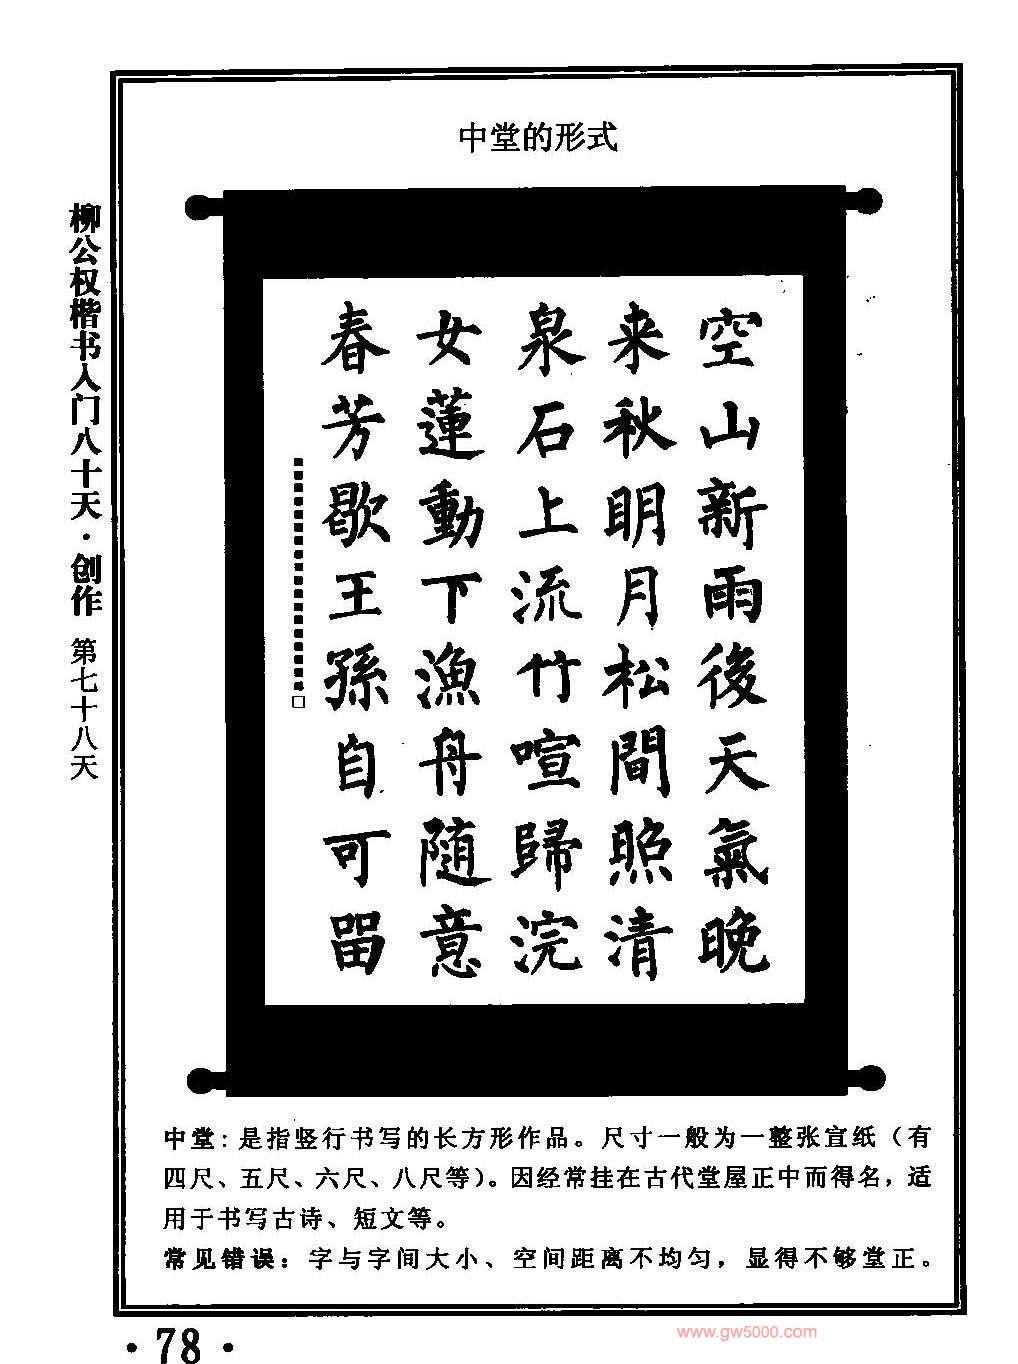 中堂的形式
柳公权楷书入门八十天·创作 第七十八天
空山新雨後天氣晚
来秋明月松間照清
泉石上流竹喧歸浣
女蓮動下漁舟随意
春芳歇王孫自可留
中堂：是指竖行书写的长方形作品。尺寸一般为一整张宣纸（有
四尺、五尺、六尺、八尺等）。因经常挂在古代堂屋正中而得名，适
用于书写古诗、短文等。
常见错误：字与字间大小、空间距离不均匀，显得不够堂正。
·78·
www.gw5000.com